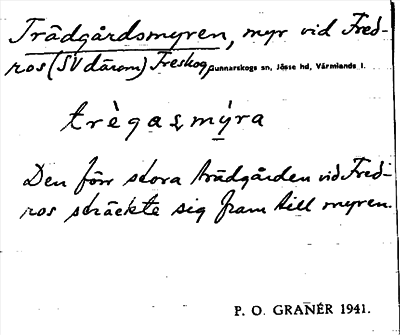 Trädgårdsmyren, myr vid Fred-
ros (SV därom) Freskog, Gunnarskogs sn, Jösse hd, Värmlands l.
trègasmýra
Den förr stora trädgården vid Fred-
ros sträckte sig fram till myren.
P. O. GRANÉR 1941.